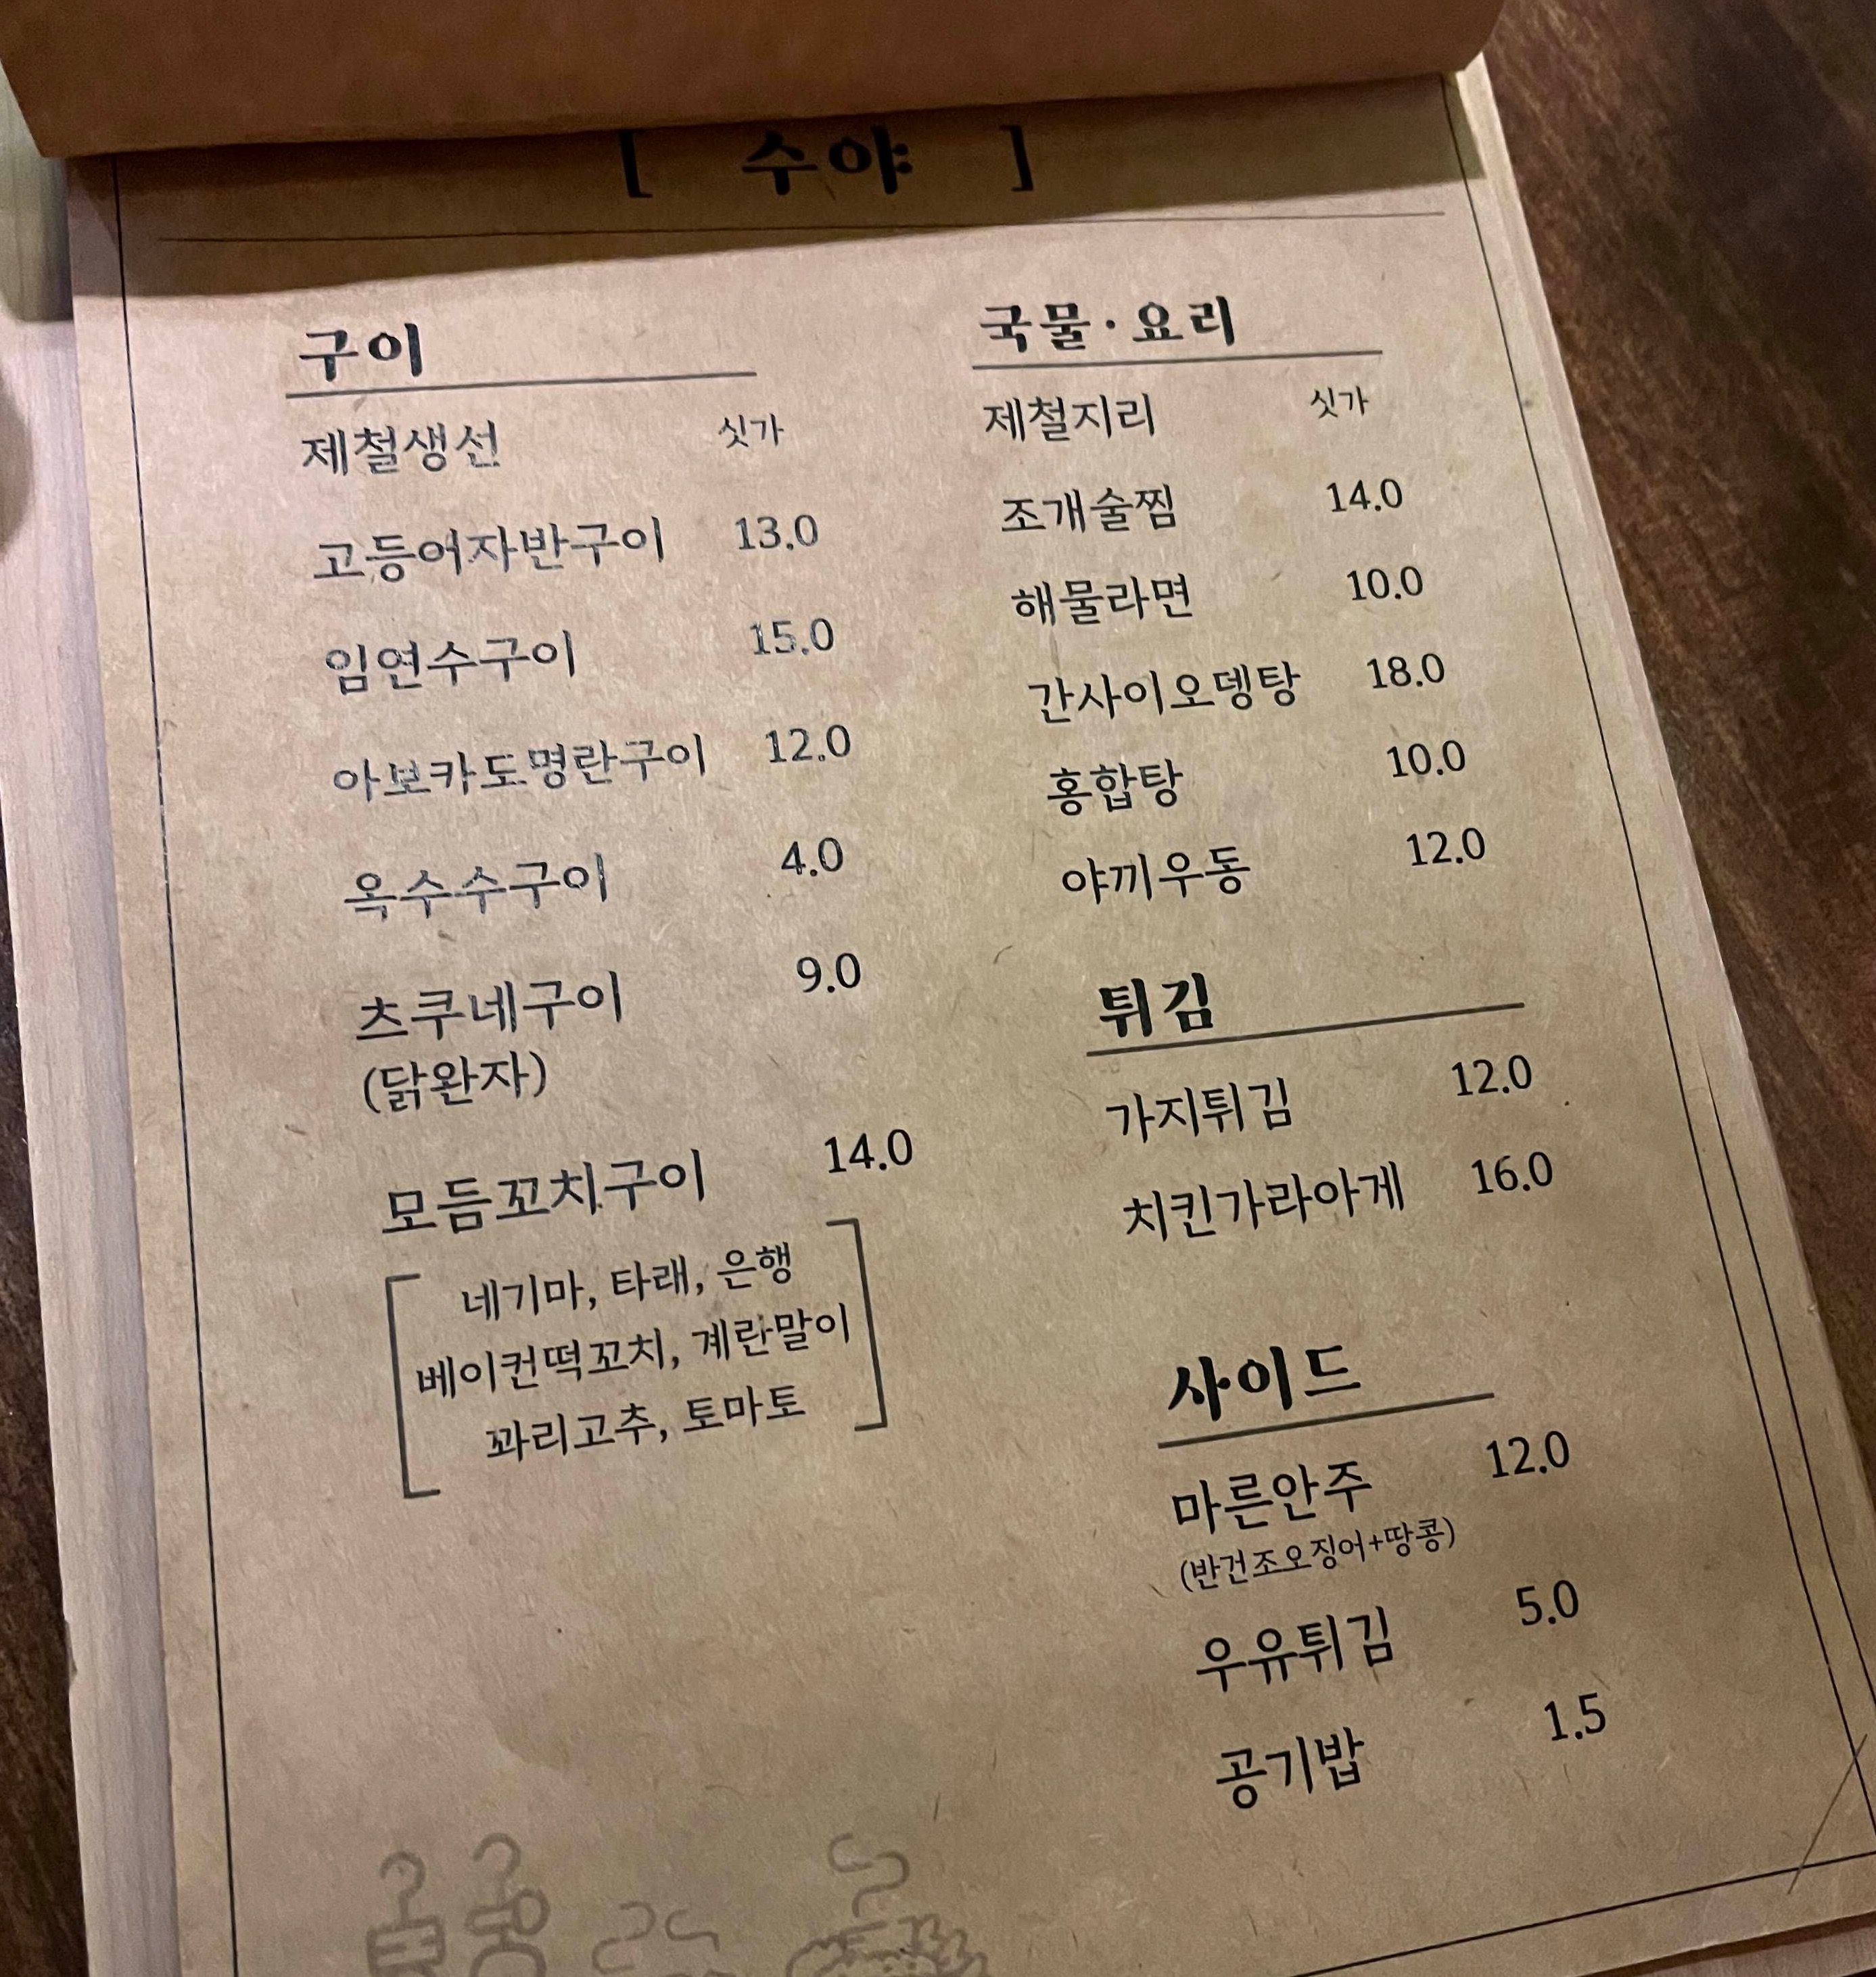 [ 수야 ]
구이
제철생선 싯가
고등어자반구이 13.0
임연수구이 15.0
아보카도명란구이 12.0
옥수수구이 4.0
츠쿠네구이 9.0
(닭완자)
모듬꼬치구이 14.0
네기마, 타래, 은행
베이컨떡꼬치, 계란말이
꽈리고추, 토마토
국물·요리
제철지리 싯가
조개술찜 14.0
해물라면 10.0
간사이오뎅탕 18.0
홍합탕 10.0
야끼우동 12.0
튀김
가지튀김 12.0
치킨가라아게 16.0
사이드
마른안주 12.0
(반건조오징어+땅콩)
우유튀김 5.0
공기밥 1.5